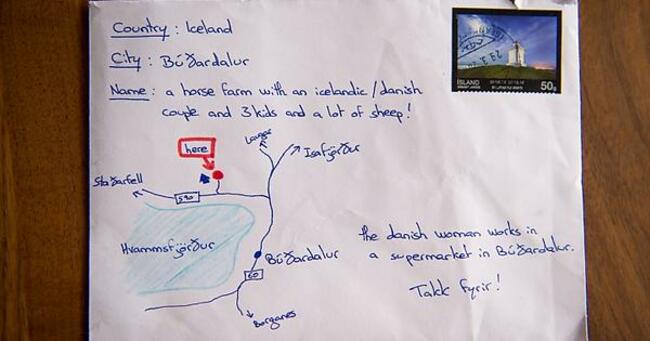 Country : Iceland
City : Búðardalur
Name : a horse farm with an icelandic/danish
couple and 3 kids and a lot of sheep!
ÍSLAND
50g
here
Laugar
Isafjørður
Staðarfell
590
Hvammsfjørður
Búðardalur
60
Borganes
the danish woman works in
a supermarket in Búðardalur.
Takk fyrir!